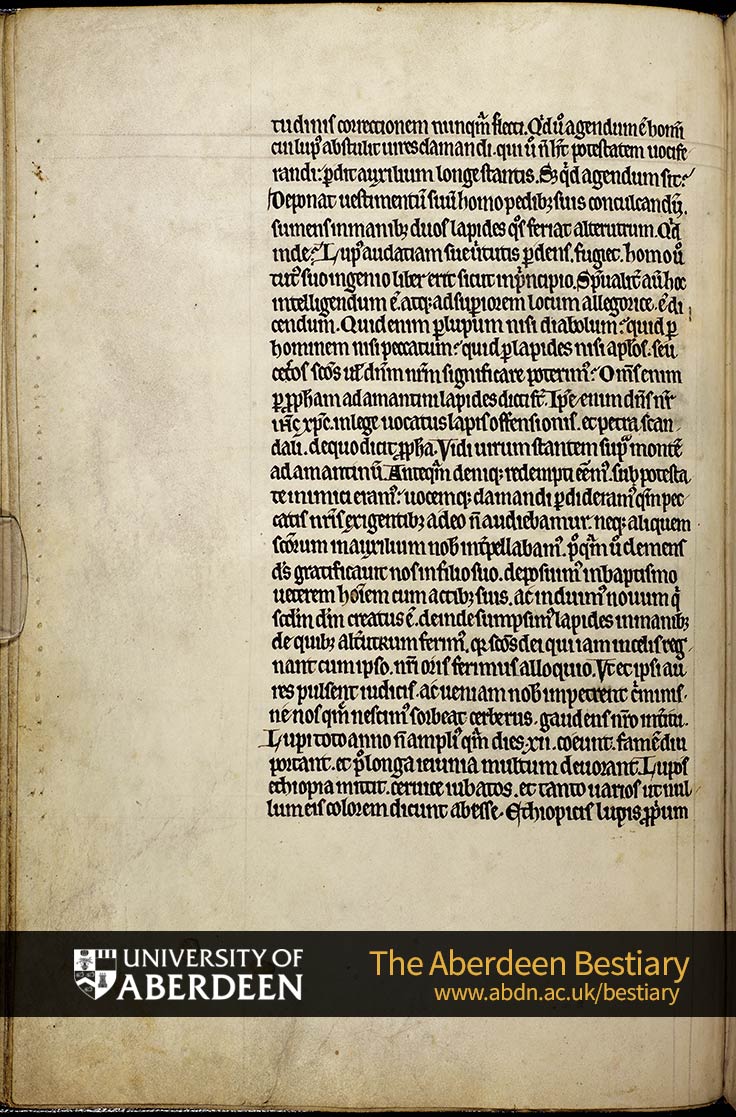 tudinis correctionem nunqͫ flecti. Qͩ ů agendum ē homī
cui lupꝰ abstulit uires clamandi. qui ů n̄ hꝫ potestatem uocife
randi: ꝑdit auxilium longe stantis. Sꝫ qͥd agendum sit?
Deponat uestimentū suū homo pedibꝫ suis conculcandū.
sumens in manibꝫ duos lapides qͦs feriat alterutrum. Qͥd
inde? Lupꝰ audatiam sue uͥtutis ꝑdens, fugiet. homo ů
tutꝰ suo ingenio liber erit sicut in pͥncipio. Spͥualit̄ aū hoc
intelligendum ē. atqꝫ ad suꝑiorem locum allegorice ē di
cendum. Quid enim ꝑ lupum nisi diabolum? quid ꝑ
hominem nisi peccatum? quid ꝑ lapides nisi apl̄os. seu
cet͛os scōs ul̄ dn̄m nr̄m significare poterimꝰ? Om̄s enim
ꝑ ꝓph̄am adamantini lapides dicti sͭ. Ip̄e enim dn̄s nr̄
ih̄c xp̄c. in lege uocatus lapis offensionis. et petra scan
dali. de quo dicit ꝓph̄a. Vidi uirum stantem supͣ montē
adamantinū. Anteqͫ deniqꝫ redempti eēmꝰ. sub potesta
te inimici eramꝰ. uocemqꝫ clamandi ꝑdideramꝰ qͫ pec
catis nr̄is exigentibꝫ a deo n̄ audiebamur. neqꝫ aliquem
scōrum in auxilium nob̄ int͛pellabamꝰ. pꝰqͫ ů clemens
d̄s gratificauit nos in filio suo. deposiumꝰ in baptismo
ueterem hoīem cum actibꝫ suis. ac induimꝰ nouum qͥ
scd̄m dm̄ creatus ē. deinde sumpsimꝰ lapides in manibꝫ
de quibꝫ alt͛utrum ferimꝰ. qꝛ scōs dei qui iam in celis reg
nant cum ipso. nr̄i oris ferimus alloquio. Vt et ipsi au
res pulsent iudicis. ac ueniam nob̄ impetrent cͥminis.
ne nos qͫ nescimꝰ sorbeat cerberus. gaudens nr̄o int͛itu.
Lupi toto anno n̄ ampliꝰ qͫ dies .xii. coeunt. famē diu
portant. et pꝰ longa ieiunia multum deuorant. Lupos
ethiopia mittit. ceruice iubatos. et tanto uarios ut nul
lum eis colorem dicunt abesse. Ethiopicis lupis ꝓpͥum
UNIVERSITY OF
ABERDEEN
The Aberdeen Bestiary
www.abdn.ac.uk/bestiary